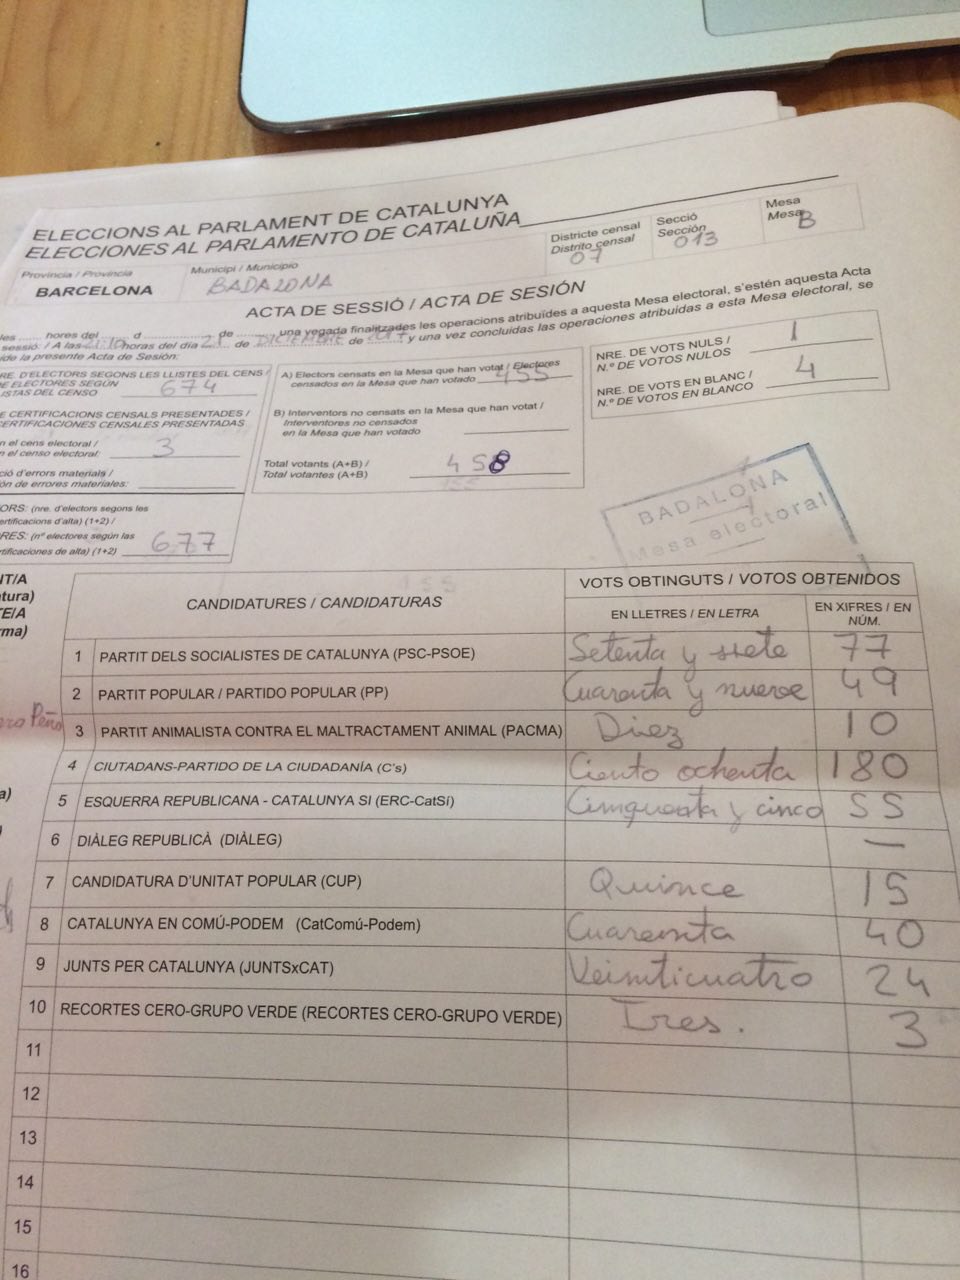 ELECCIONS AL PARLAMENT DE CATALUNYA
ELECCIONES AL PARLAMENTO DE CATALUÑA
Districte censal
Distrito censal
07
Secció
Sección
013
Mesa
Mesa
B
Província / Provincia
BARCELONA
Municipi / Municipio
BADALONA
ACTA DE SESSIÓ / ACTA DE SESIÓN
les ...... hores del ...... d ...... de ...... una vegada finalitzades les operacions atribuïdes a aquesta Mesa electoral, s'estén aquesta Acta
sessió: / A las 21:10 horas del día 21 de DICIEMBRE de 2017 y una vez concluidas las operaciones atribuidas a esta Mesa electoral, se
de la presente Acta de Sesión:
RE. D'ELECTORS SEGONS LES LLISTES DEL CENS /
E ELECTORES SEGÚN
ISTAS DEL CENSO 674
E CERTIFICACIONS CENSALS PRESENTADES /
ERTIFICACIONES CENSALES PRESENTADAS
n el cens electoral /
n el censo electoral: 3
ció d'errors materials /
ón de errores materiales:
ORS: (nre. d'electors segons les
ertificacions d'alta) (1+2) /
RES: (nº electores según las
rtificaciones de alta) (1+2) 677
A) Electors censats en la Mesa que han votat / Electores
censados en la Mesa que han votado 455
B) Interventors no censats en la Mesa que han votat /
Interventores no censados
en la Mesa que han votado
Total votants (A+B) /
Total votantes (A+B) 458
NRE. DE VOTS NULS /
N.º DE VOTOS NULOS 1
NRE. DE VOTS EN BLANC /
N.º DE VOTOS EN BLANCO 4
BADALONA
Mesa electoral
NT/A
atura)
TE/A
rma)
CANDIDATURES / CANDIDATURAS
VOTS OBTINGUTS / VOTOS OBTENIDOS
EN LLETRES / EN LETRA
EN XIFRES / EN
NÚM.
1 PARTIT DELS SOCIALISTES DE CATALUNYA (PSC-PSOE) Setenta y siete 77
2 PARTIT POPULAR / PARTIDO POPULAR (PP) Cuarenta y nueve 49
3 PARTIT ANIMALISTA CONTRA EL MALTRACTAMENT ANIMAL (PACMA) Diez 10
4 CIUTADANS-PARTIDO DE LA CIUDADANÍA (C's) Ciento ochenta 180
5 ESQUERRA REPUBLICANA - CATALUNYA SI (ERC-CatSí) Cimquenta y cinco 55
6 DIÀLEG REPUBLICÀ (DIÀLEG) —
7 CANDIDATURA D'UNITAT POPULAR (CUP) Quince 15
8 CATALUNYA EN COMÚ-PODEM (CatComú-Podem) Cuarenta 40
9 JUNTS PER CATALUNYA (JUNTSxCAT) Veinticuatro 24
10 RECORTES CERO-GRUPO VERDE (RECORTES CERO-GRUPO VERDE) Tres. 3
11
12
13
14
15
16